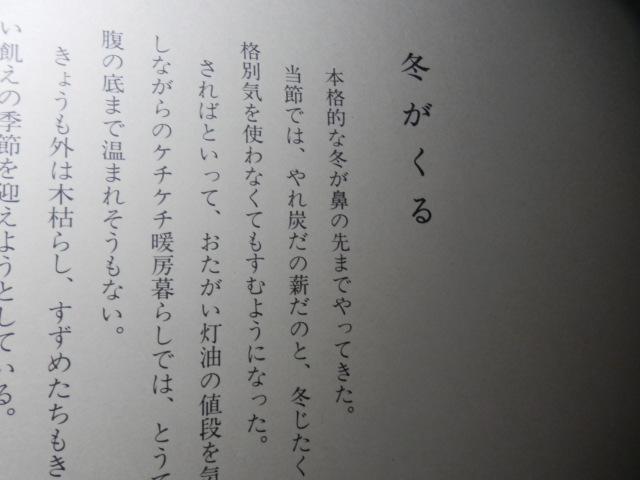 冬がくる
本格的な冬が鼻の先までやってきた。
当節では、やれ炭だの薪だのと、冬じたく
格別気を使わなくてもすむようになった。
さればといって、おたがい灯油の値段を気
しながらのケチケチ暖房暮らしでは、とうて
腹の底まで温まれそうもない。
きょうも外は木枯らし、すずめたちもき
い飢えの季節を迎えようとしている。